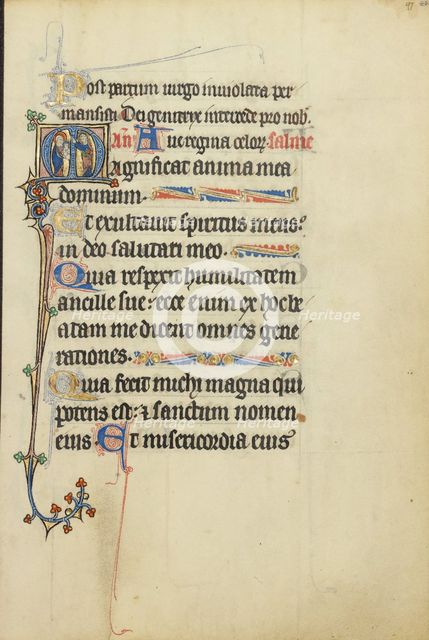 97
Post partum virgo inviolata per
mansisti Dei genitrix intercede pro nob.
An Ave regina celor. salme
Magnificat anima mea
dominum.
Et exultavit spiritus meus:
in deo salutari meo.
Quia respexit humilitatem
ancille sue: ecce enim ex hoc be
atam me dicent omnes gene
rationes.
Quia fecit michi magna qui
potens est: & sanctum nomen
eius. Et misericordia eius
Heritage
Heritage
Heritage
Heritage